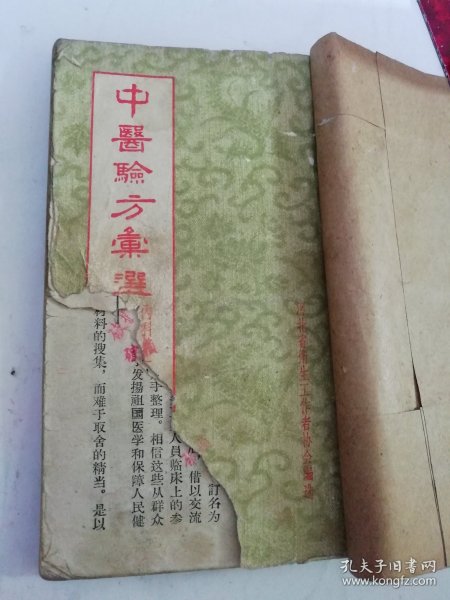 中醫驗方彙選
内科
江北省衛生工作者协会編
訂名为
借以交流
人員临床上的参
手整理。相信这些从群众
发揚祖国医学和保障人民健
材料的搜集，而难于取舍的精当。是以
孔夫子旧书网
www.kongfz.com